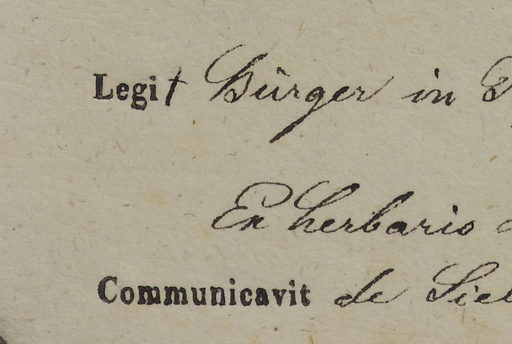 Legit Bürger in
Ex herbario
Communicavit de Sieb